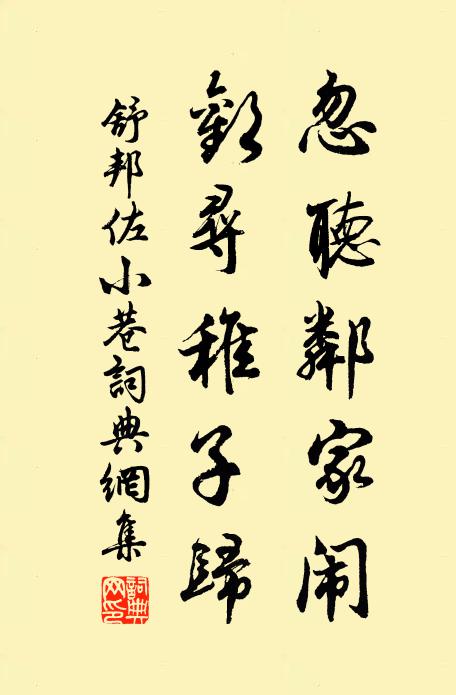 忽聽鄰家闹
歡尋稚子歸
舒邦佐小巷詞典網集
詞典网印